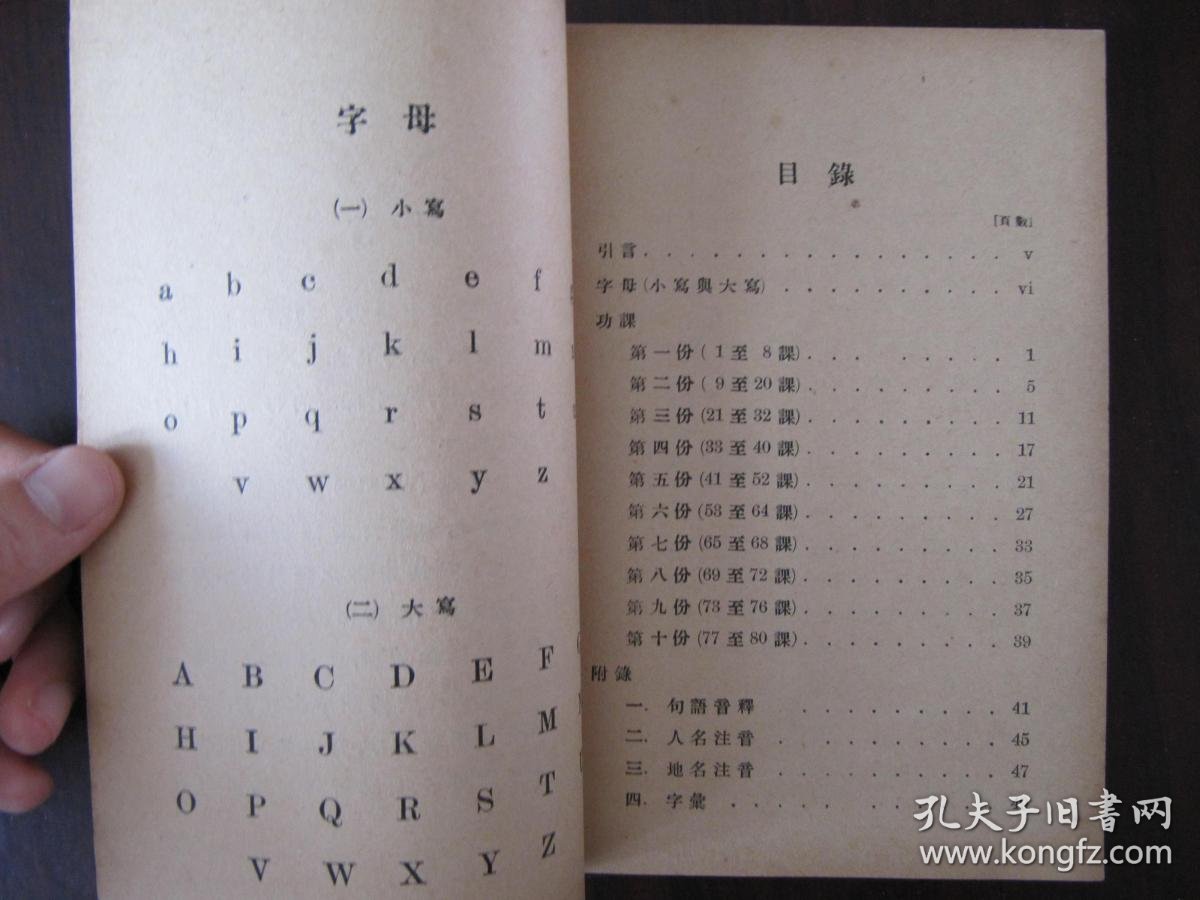 字母
(一) 小寫
a b c d e f
h i j k l m
o p q r s t
v w x y z
(二) 大寫
A B C D E F
H I J K L M
O P Q R S T
V W X Y Z
目錄
[頁數]
引言. . . . . . . . . . . . . . . . . v
字母(小寫與大寫) . . . . . . . . . . vi
功課
第一份( 1至 8課). . . . . . . . 1
第二份( 9至20課). . . . . . . . . 5
第三份(21至32課). . . . . . . . . 11
第四份(33至40課). . . . . . . . . 17
第五份(41至52課). . . . . . . . . 21
第六份(53至64課). . . . . . . . . 27
第七份(65至68課). . . . . . . . . 33
第八份(69至72課). . . . . . . . . 35
第九份(73至76課). . . . . . . . . 37
第十份(77至80課). . . . . . . . . 39
附錄
一. 句語音釋 . . . . . . . . . 41
二. 人名注音 . . . . . . . . . 45
三. 地名注音 . . . . . . . . . 47
四. 字彙 . . . . . . . . .
孔夫子旧書网
www.kongfz.com